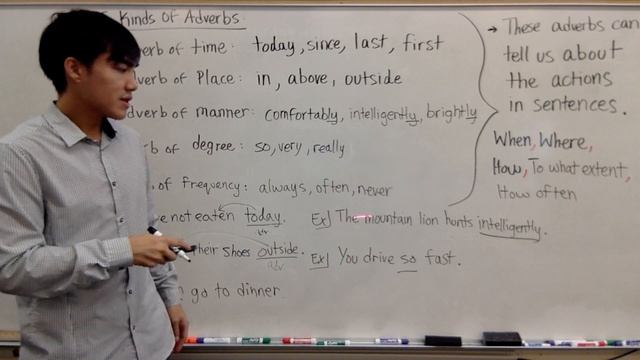 Kinds of Adverbs
verb of time: today, since, last, first
dverb of Place: in, above, outside
dverb of manner: comfortably, intelligently, brightly
rb of degree: so, very, really
of frequency: always, often, never
e not eaten today. Ex] The mountain lion hunts intelligently.
adv
their shoes outside. Ex] You drive so fast.
adv
go to dinner
→ These adverbs can
tell us about
the actions
in sentences.
When, Where,
How, To what extent,
How often